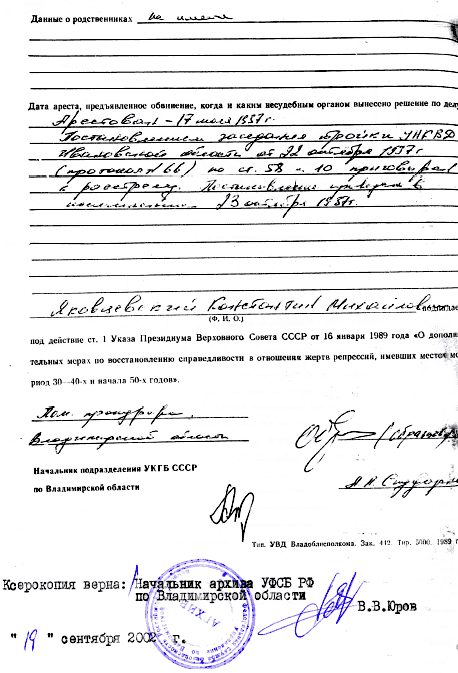 Данные о родственниках не имеет
Дата ареста, предъявленное обвинение, когда и каким несудебным органом вынесено решение по делу
Арестован - 17 июля 1937 г.
Постановлением заседания тройки УНКВД
Ивановской области от 22 октября 1937 г
(протокол № 66) по ст. 58 - 10 приговорен
к расстрелу. Постановление приведено в
исполнение 23 октября 1937 г.
Яковлевский Константин Михайлов
(Ф. И. О.)
под действие ст. 1 Указа Президиума Верховного Совета СССР от 16 января 1989 года «О дополни
тельных мерах по восстановлению справедливости в отношении жертв репрессий, имевших место
риод 30—40-х и начала 50-х годов».
Пом. прокурора
Владимирской области
Начальник подразделения УКГБ СССР
по Владимирской области
Тип. УВД Владоблисполкома. Зак. 412. Тир. 5000. 1989 г.
Ксерокопия верна: Начальник архива УФСБ РФ
по Владимирской области
В.В.Юров
"19" сентября 2002 г.
АРХИВ